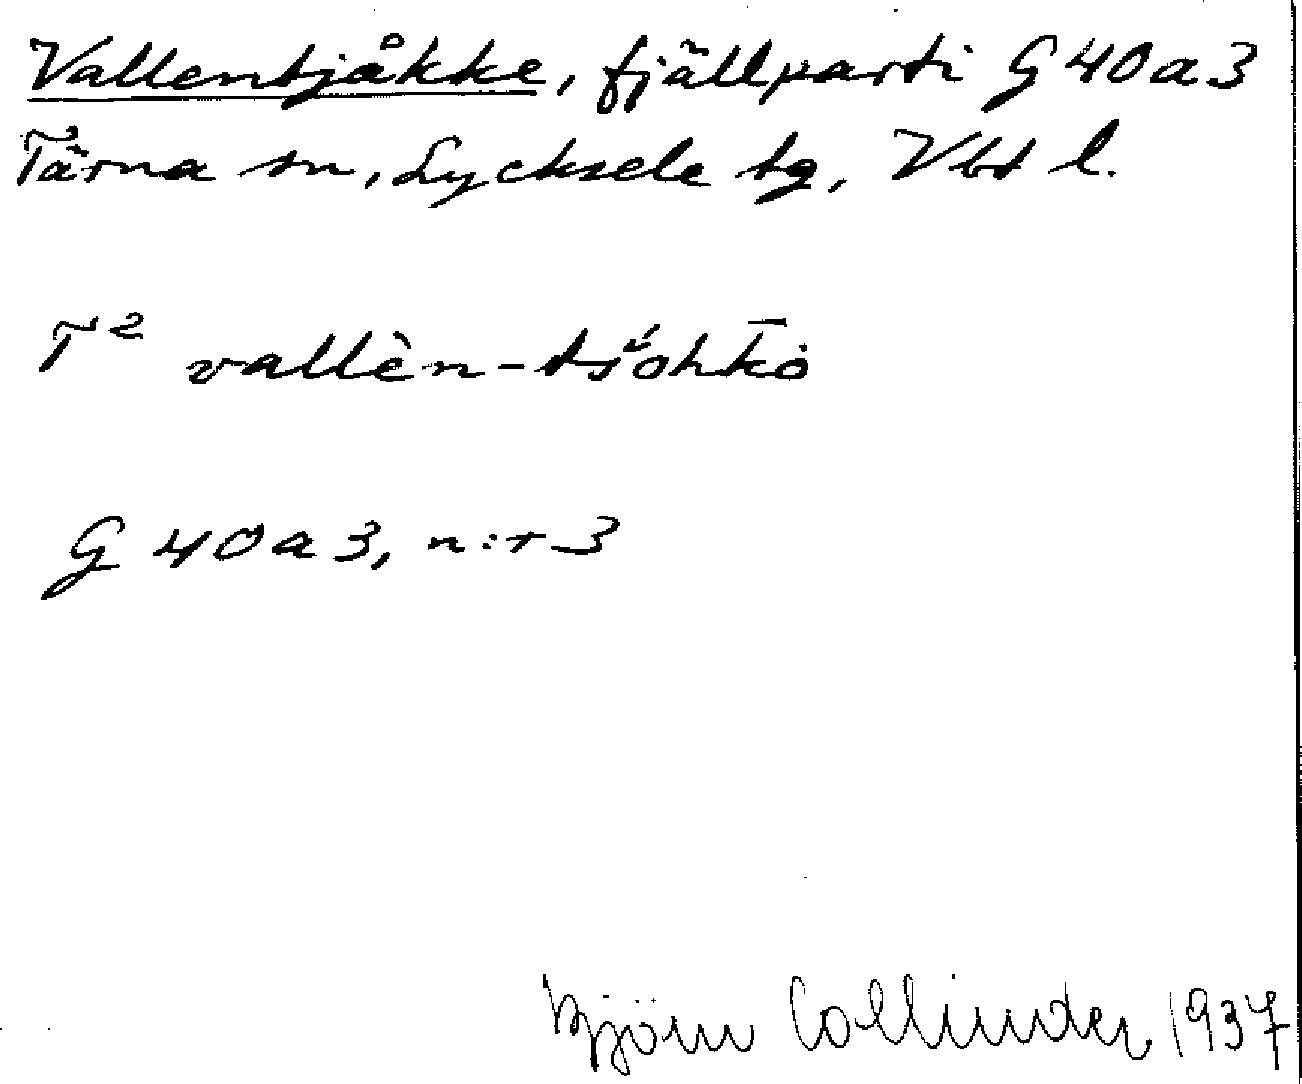 Vallentjåkke, fjällparti G40a3
Tärna sn, Lycksele tg, Vbt l.
T² vallèn-tś́ohk̄ȯ
G 40a3, n:r 3
Björn Collinder 1937